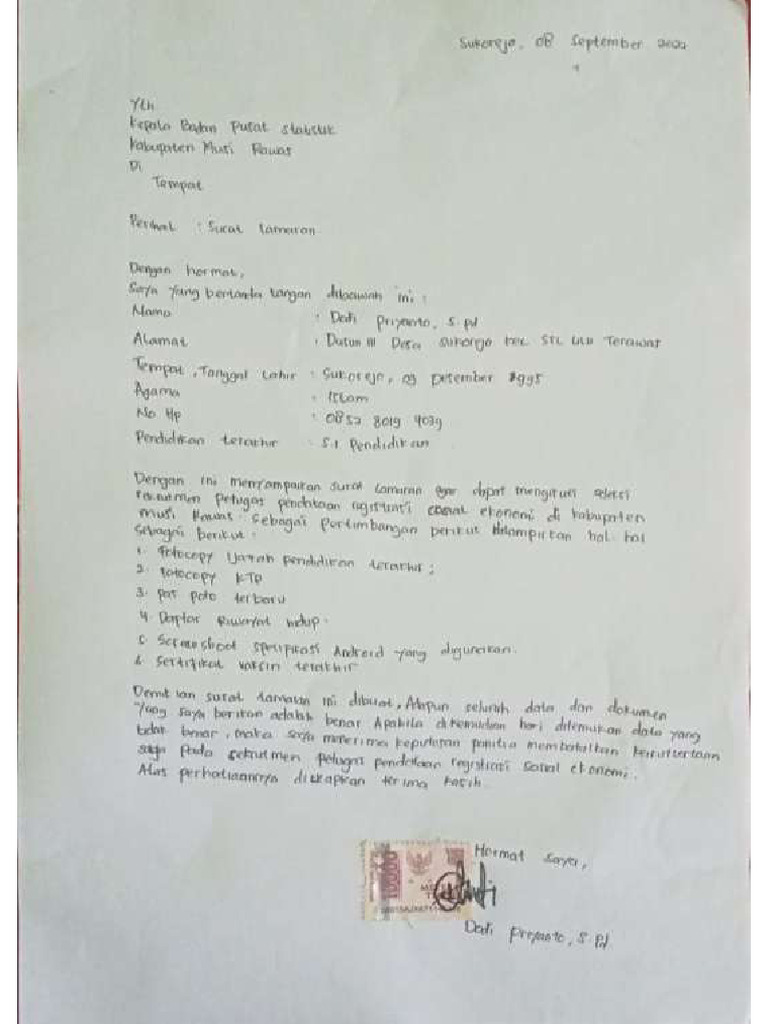 Sukorejo, 08 September 2022
Yth
Kepala Badan Pusat statistik
Kabupaten Musi Rawas
Di
Tempat
Perihal : Surat lamaran
Dengan hormat,
Saya yang bertanda tangan dibawah ini :
Nama : Dati Priyanto, S.pd
Alamat : Dusun III Desa Sukorejo kec. STL Ulu Terawas
Tempat, Tanggal Lahir : Sukorejo, 09 Desember 1995
Agama : Islam
No Hp : 0852 8019 9039
Pendidikan terakhir : S.1 Pendidikan
Dengan ini menyampaikan surat lamaran agar dapat mengikuti seleksi
rekrutmen petugas pendataan registrasi sosial ekonomi di kabupaten
musi Rawas. Sebagai pertimbangan berikut dilampirkan hal hal
sebagai berikut :
1. fotocopy Ijazah pendidikan terakhir ;
2. fotocopy KTP
3. pas poto terbaru
4. Daptar Riwayat hidup.
5. Screenshoot spesifikasi Android yang digunakan.
6. Sertifikat vaksin terakhir
Demikian surat lamaran ini dibuat, Adapun seluruh data dan dokumen
yang saya berikan adalah benar Apabila dikemudian hari ditemukan data yang
tidak benar, maka saya menerima keputusan panitia membatalkan keikutsertaan
saya pada rekrutmen petugas pendataan registrasi sosial ekonomi.
Atas perhatiannya diucapkan terima kasih.
Hormat saya,
10000
Dati Priyanto, S.Pd